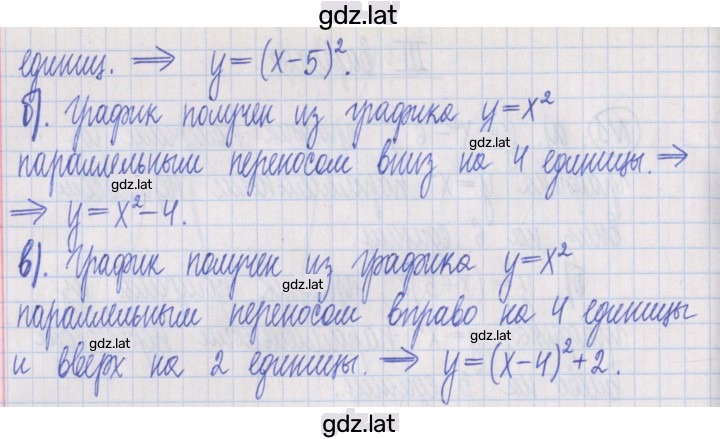 gdz.lat
единиц. ⇒ y=(x-5)².
gdz.lat
б). График получен из графика y=x²
параллельным переносом вниз на 4 единицы. ⇒
gdz.lat gdz.lat
⇒ y=x²-4.
gdz.lat
в). График получен из графика y=x²
gdz.lat
параллельным переносом вправо на 4 единицы
gdz.lat gdz.lat
и вверх на 2 единицы. ⇒ y=(x-4)²+2.
gdz.lat
gdz.lat